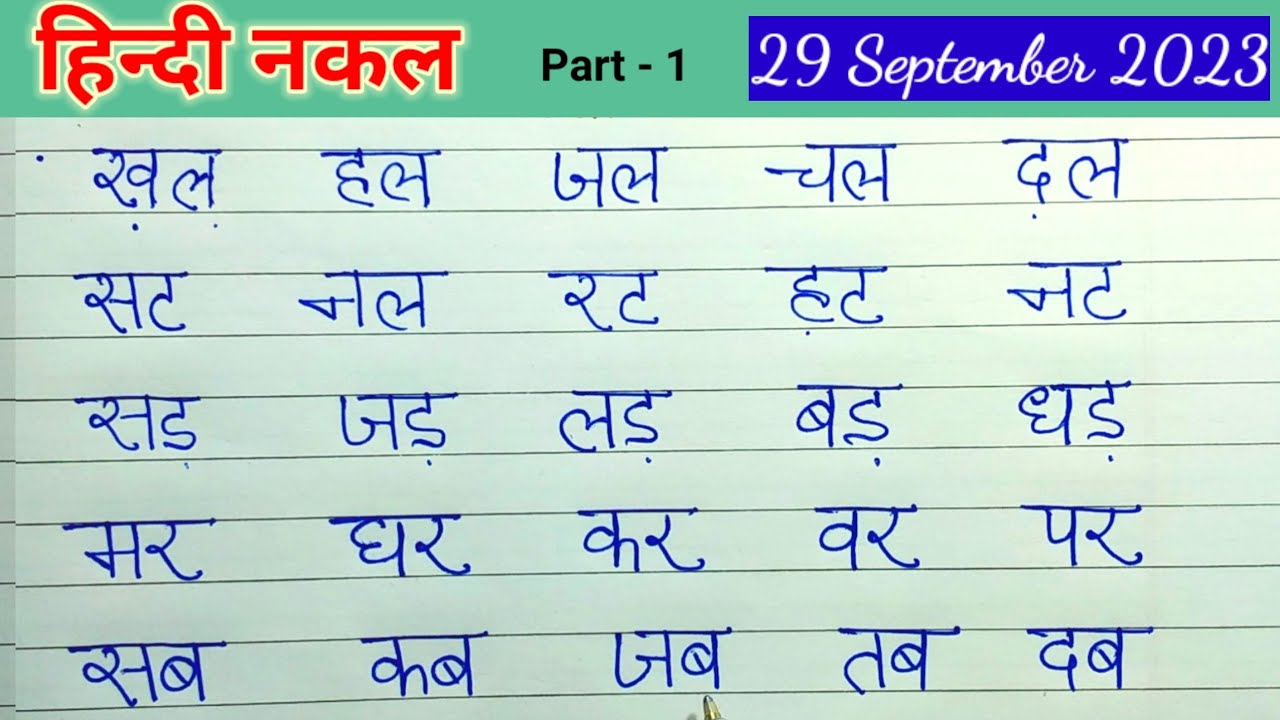 हिन्दी नकल Part - 1 29 September 2023
ख़ल हल जल चल द़ल
सट नल रट ह़ट नट
सड़ जड़ लड़ बड़ धड़
मर घर कर वर पर
सब कब जब तब दब